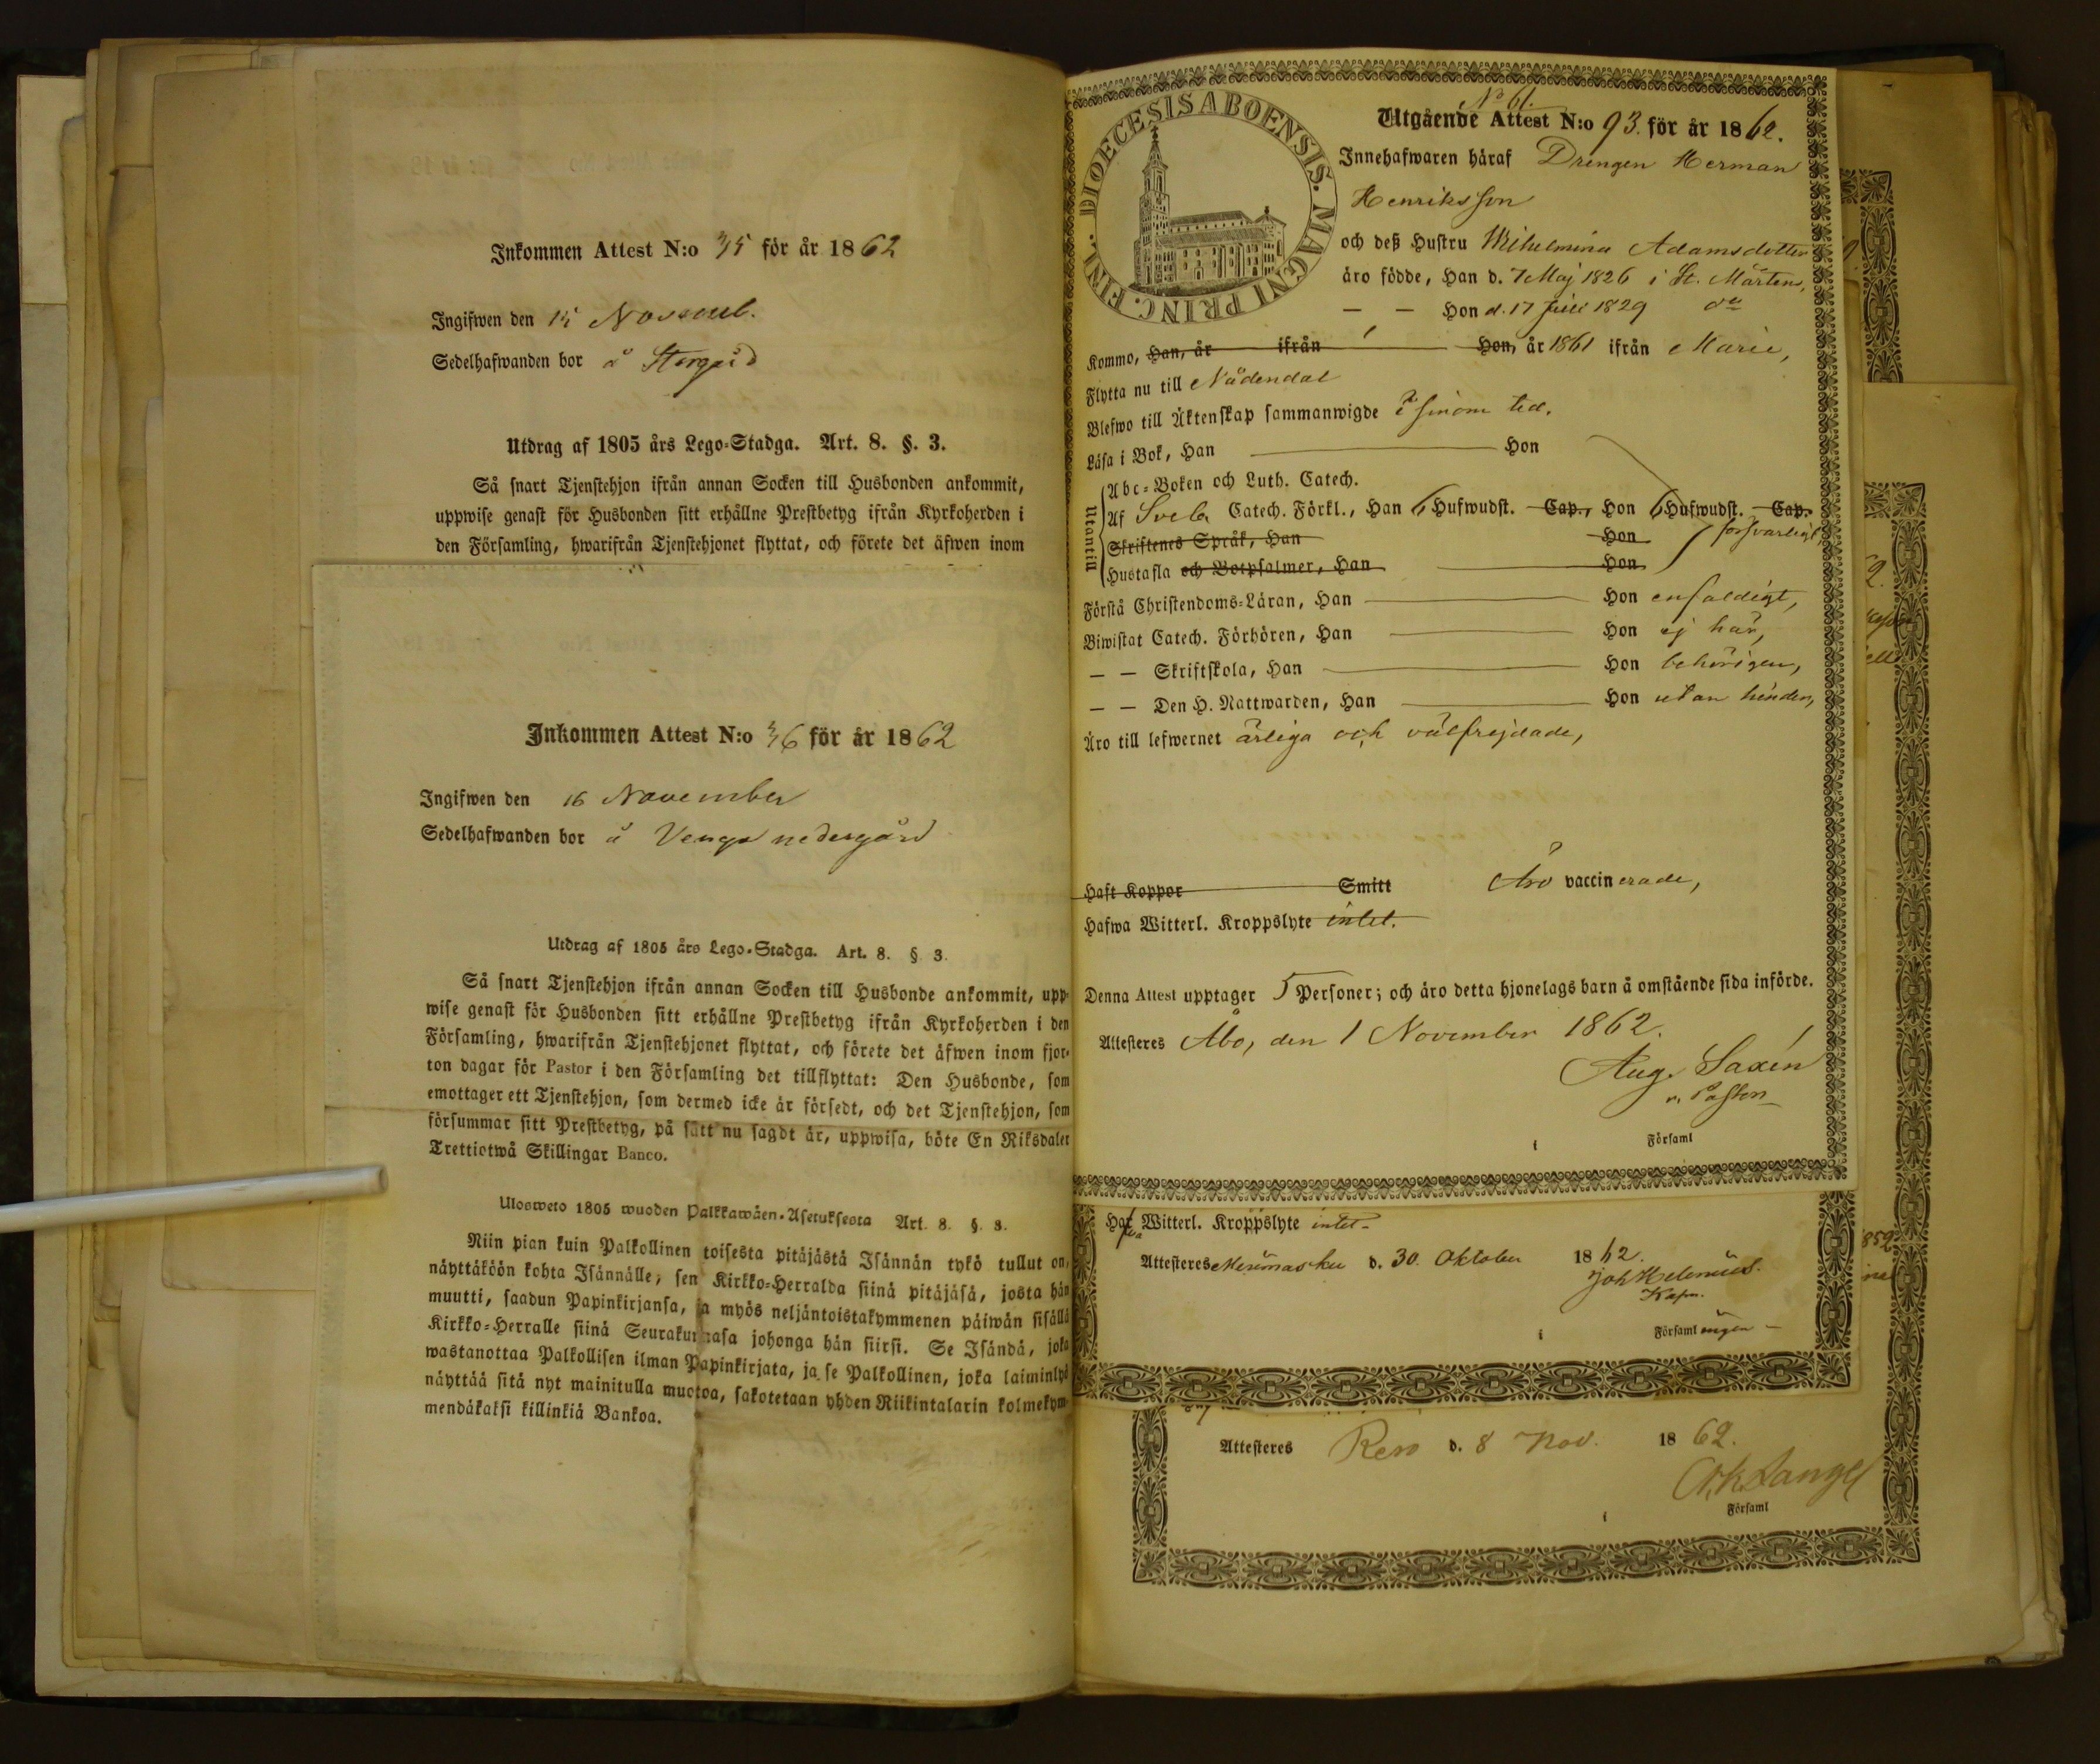 Inkommen Attest N:o 35 för år 1862
Ingifwen den 15
Sedelhafwanden bor å Storgård
Utdrag af 1805 års Lego-Stadga. Art. 8. §. 3.
Så snart Tjenstehjon ifrån annan Socken till Husbonden ankommit,
uppwise genast för Husbonden sitt erhållne Prestbetyg ifrån Kyrkoherden i
den Församling, hwarifrån Tjenstehjonet flyttat, och förete det äfwen inom
Inkommen Attest N:o 36 för år 1862
Ingifwen den 16 November
Sedelhafwanden bor å nedergård
Utdrag af 1805 års Lego-Stadga. Art. 8. § 3.
Så snart Tjenstehjon ifrån annan Socken till Husbonde ankommit, upp-
wise genast för Husbonden sitt erhållne Prestbetyg ifrån Kyrkoherden i den
Församling, hwarifrån Tjenstehjonet flyttat, och förete det äfwen inom fjor-
ton dagar för Pastor i den Församling det tillflyttat: Den Husbonde, som
emottager ett Tjenstehjon, som dermed icke är försedt, och det Tjenstehjon, som
försummar sitt Prestbetyg, på sätt nu sagdt är, uppwisa, böte En Riksdaler
Trettiotwå Skillingar Banco.
Ulosweto 1805 wuoden Palkkawäen-Asetuksesta Art. 8. §. 3.
Niin pian kuin Palkollinen toisesta pitäjästä Isännän tykö tullut on,
näyttäköön kohta Isännälle, sen Kirkko-Herralda siinä pitäjäsä, josta hän
muutti, saadun Papinkirjansa, ja myös neljäntoistakymmenen päiwän sisällä
Kirkko-Herralle siinä Seurakunnasa johonga hän siirsi. Se Isändä, joka
wastanottaa Palkollisen ilman Papinkirjata, ja se Palkollinen, joka laiminlyö
näyttää sitä nyt mainitulla muotoa, sakotetaan yhden Riikintalarin kolmekym-
mendäkaksi killinkiä Bankoa.
DIOECESIS ABOENSIS. MAGNI PRINC. FINL.
No 61.
Utgående Attest N:o 93. för år 1862.
Innehafwaren häraf Drengen Herman
Henriksson
och deß Hustru Wilhelmina Adamsdotter
äro födde, Han d. 7 Maj 1826 i St. Mårtens,
— — Hon d. 17 Juli 1829 do
Kommo, Han, år ifrån Hon, år 1861 ifrån Marie,
Flytta nu till Nådendal
Blefwo till Äktenskap sammanwigde i sinom tid.
Läsa i Bok, Han Hon
Utantill
Abc-Boken och Luth. Catech.
Af Sveb. Catech. Förkl., Han 6 Hufwudst. Cap., Hon 6 Hufwudst. Cap.
Skriftenes Språk, Han Hon försvarligt,
Hustafla och Botpsalmer, Han Hon
Förstå Christendoms-Läran, Han Hon enfaldigt,
Biwistat Catech. Förhören, Han Hon ej här,
— — Skriftskola, Han Hon behörigen,
— — Den H. Nattwarden, Han Hon utan hinder,
Äro till lefwernet ärliga och välfrejdade,
Haft Koppor Smitt Äro vaccinerade,
Hafwa Witterl. Kroppslyte intet.
Denna Attest upptager 5 Personer; och äro detta hjonelags barn å omstående sida införde.
Attesteres Åbo, den 1 November 1862.
Aug. Saxén
v. Pastor
i Församl
Hafva Witterl. Kroppslyte intet-
Attesteres Merimasku d. 30. Oktober 1862.
Joh Helenius.
Kapn.
i Församlingen
Attesteres Reso d. 8 Nov. 1862.
i Församl